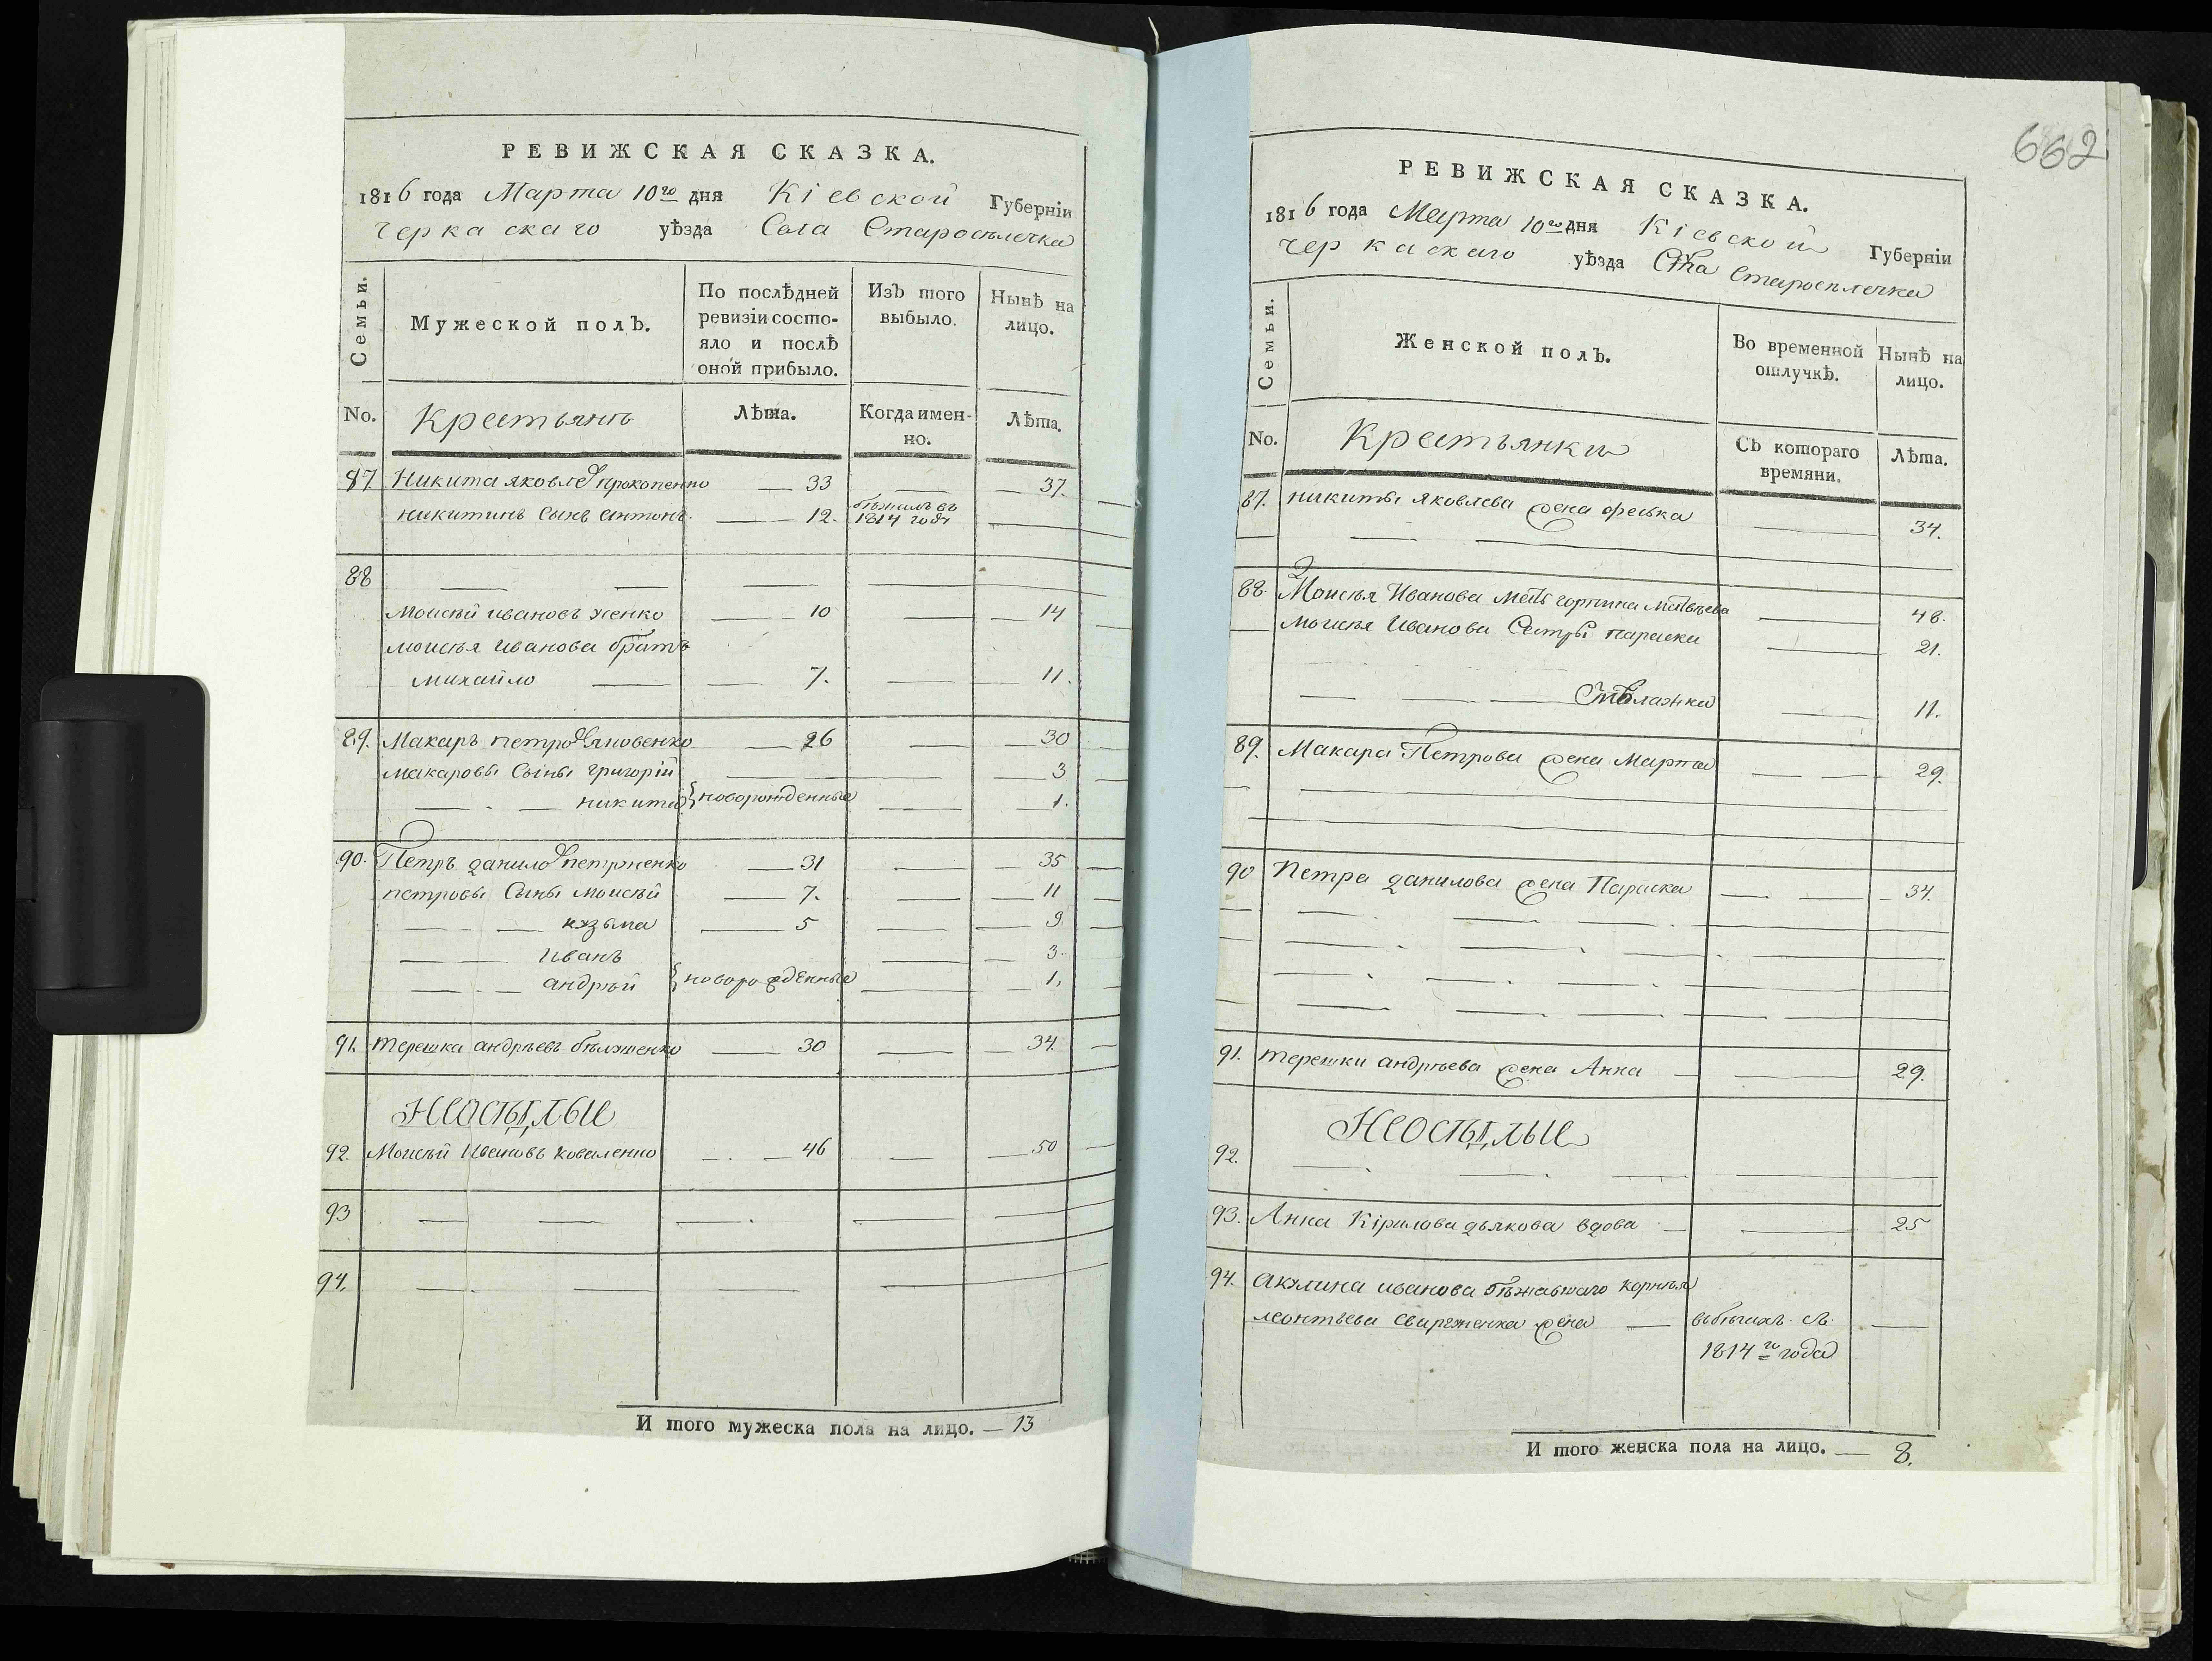 РЕВИЖСКАЯ СКАЗКА.
1816 года Марта 10го дня Кіевской Губерніи
Черкаскаго уѣзда Села Староселечка
Семьи.
Мужеской полъ.
По послѣдней ревизіи состояло и послѣ оной прибыло.
Изъ того выбыло.
Нынѣ на лицо.
No. Крестьянъ Лѣта. Когда именно. Лѣта.
87. Никита яковлевъ прокопенко — 33 — 37.
никитинъ сынъ антонъ — 12. бѣжалъ въ 1814 годѣ
88
Моисѣй ивановъ женко — 10 — 14
моисѣя иванова братъ
михайло — 7. — 11.
89. Макаръ петровъ яновенко — 26 — 30
макаровы сыны григорій — 3
никита } новорожденные — 1.
90. Петръ даниловъ петрненко — 31 — 35
петровы сыны моисѣй — 7. — 11
кузьма — 5 — 9
иванъ — 3.
андрѣй { новорожденные — 1.
91. терешка андрѣевъ бѣлженко — 30 — 34.
Неосѣдлые
92. Моисѣй Ивановъ коваленко — 46 — 50
93 — — — — —
94. — — — —
И того мужеска пола на лицо. — 13
662
РЕВИЖСКАЯ СКАЗКА.
1816 года Марта 10го дня Кіевской Губерніи
Черкаскаго уѣзда Села Староселечка
Семьи.
Женской полъ.
Во временной отлучкѣ.
Нынѣ на лицо.
No. Крестьянки Съ котораго времяни. Лѣта.
87. никиты яковлева жена феська — 34.
88. Моисѣя Иванова мать горпина матвѣева — 48.
моисѣя иванова сестры параска — 21.
малажка — 11.
89. Макара Петрова жена марта — 29.
90 Петра данилова жена Параска — 34.
91. терешки андрѣева жена Анна — 29.
Неосѣдлые
92. — — — —
93. Анна Кірилова дьякова вдова — 25
94. акулина иванова бѣжавшаго корнѣя
леонтьева жена — въ бѣгахъ съ
1814го года
И того женска пола на лицо. — 8.